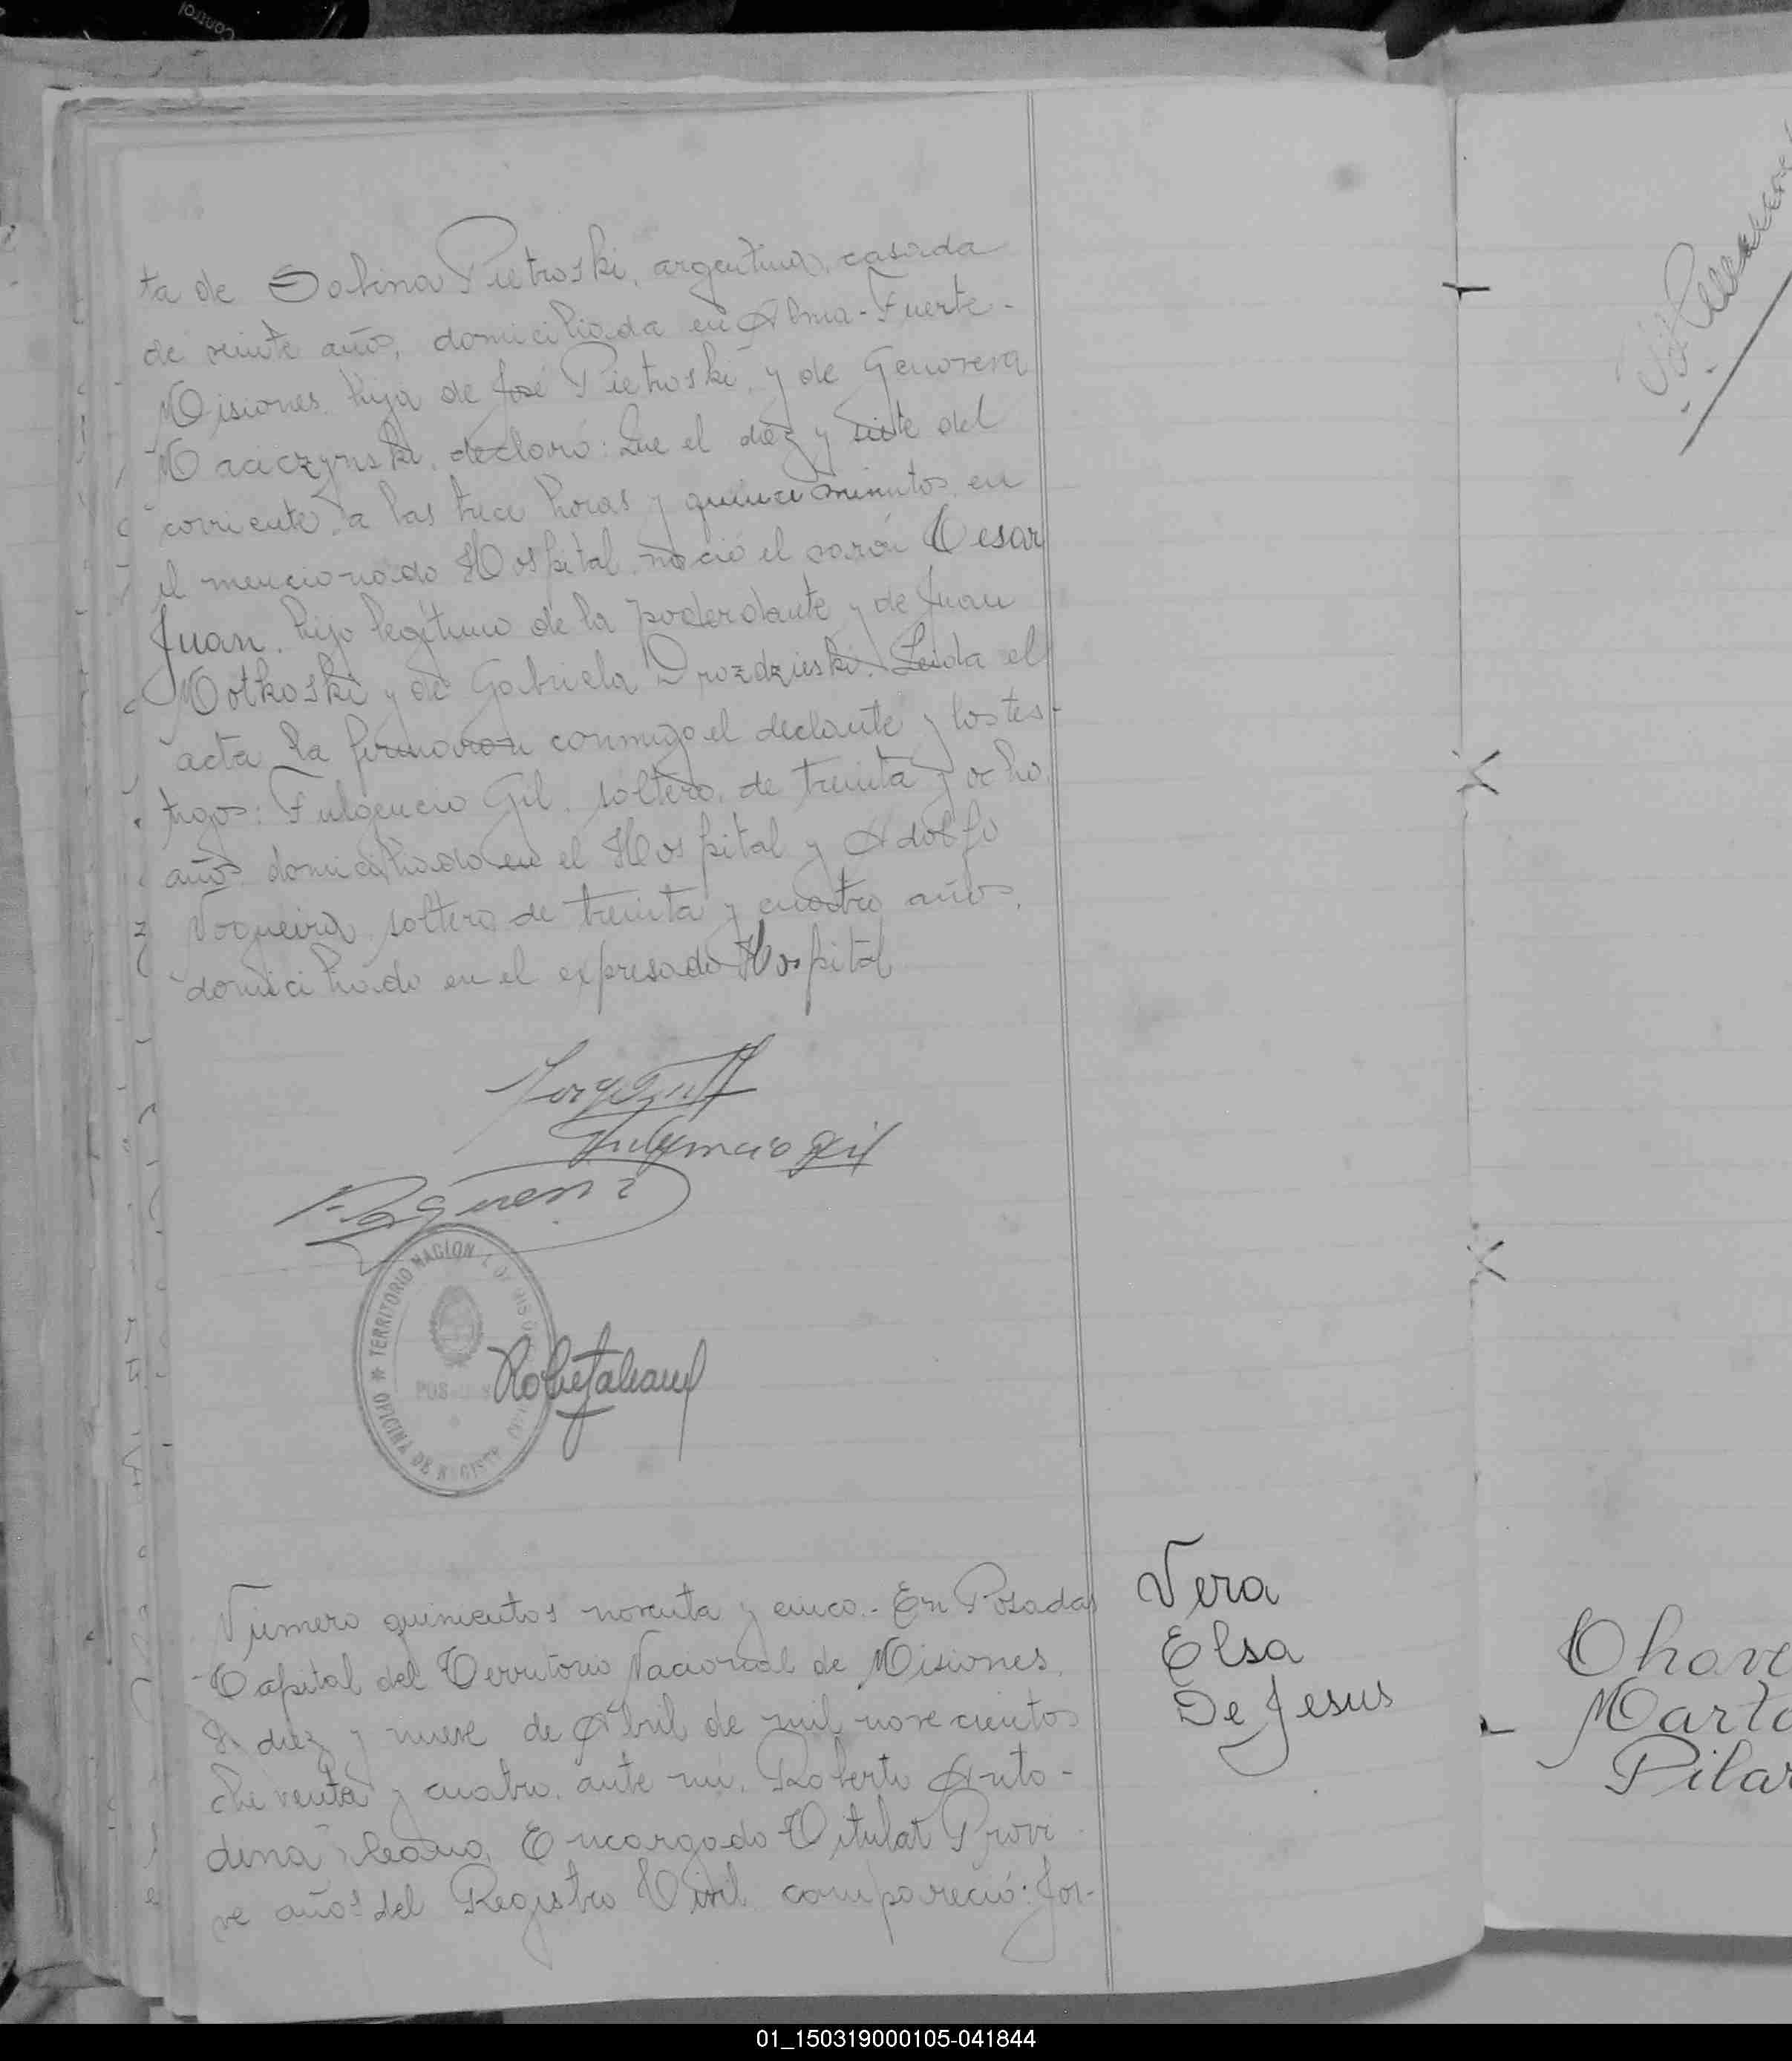 ta de Sofina Pietroski, argentina, casada
de veinte años, domiciliada en Alma-Fuerte-
Misiones, hija de José Pietroski, y de Genoveva
Maaczynski, declaró: Que el diez y siete del
corriente, a las trece horas y quince minutos, en
el mencionado Hospital, nació el varón Cesar
Juan, hijo legítimo de la poderdante y de Juan
Motkoski y de Gabriela Drozdzieski. Leida el
acta, la firmaron conmigo el declante y los tes-
tigos: Fulgencio Gil, soltero, de treinta y ocho
años domiciliado en el Hospital y Adolfo
Nogueira, soltero de treinta y cuatro años,
domiciliado en el expresado Hospital
Fulgencio Gil
TERRITORIO NACIONAL DE MISIONES
OFICINA DE REGISTRO CIVIL
POSADAS
Número quinientos noventa y cinco.- En Posadas
Capital del Territorio Nacional de Misiones,
diez y nueve de Abril de mil novecientos
y cuatro, ante mi, Roberto
Encargado Titular
ve años del Registro Civil, compareció: Jor-
Vera
Elsa
De Jesus
Chave
Marta
Pilar
01_150319000105-041844